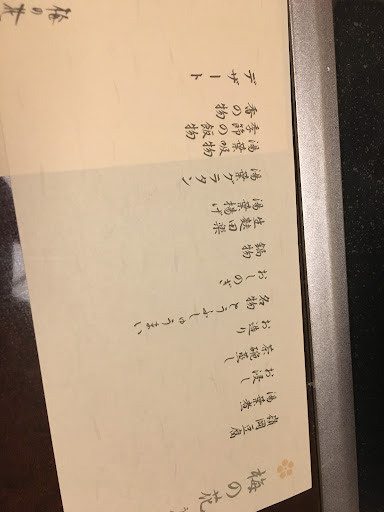 梅の花
嶺岡豆腐
湯葉煮
お浸し
茶碗蒸し
お造り
名物 とうふしゅうまい
おしのぎ
鍋物
生麩田楽
湯葉揚げ
湯葉グラタン
湯葉吸物
季節の飯物
香の物
デザート
梅の花